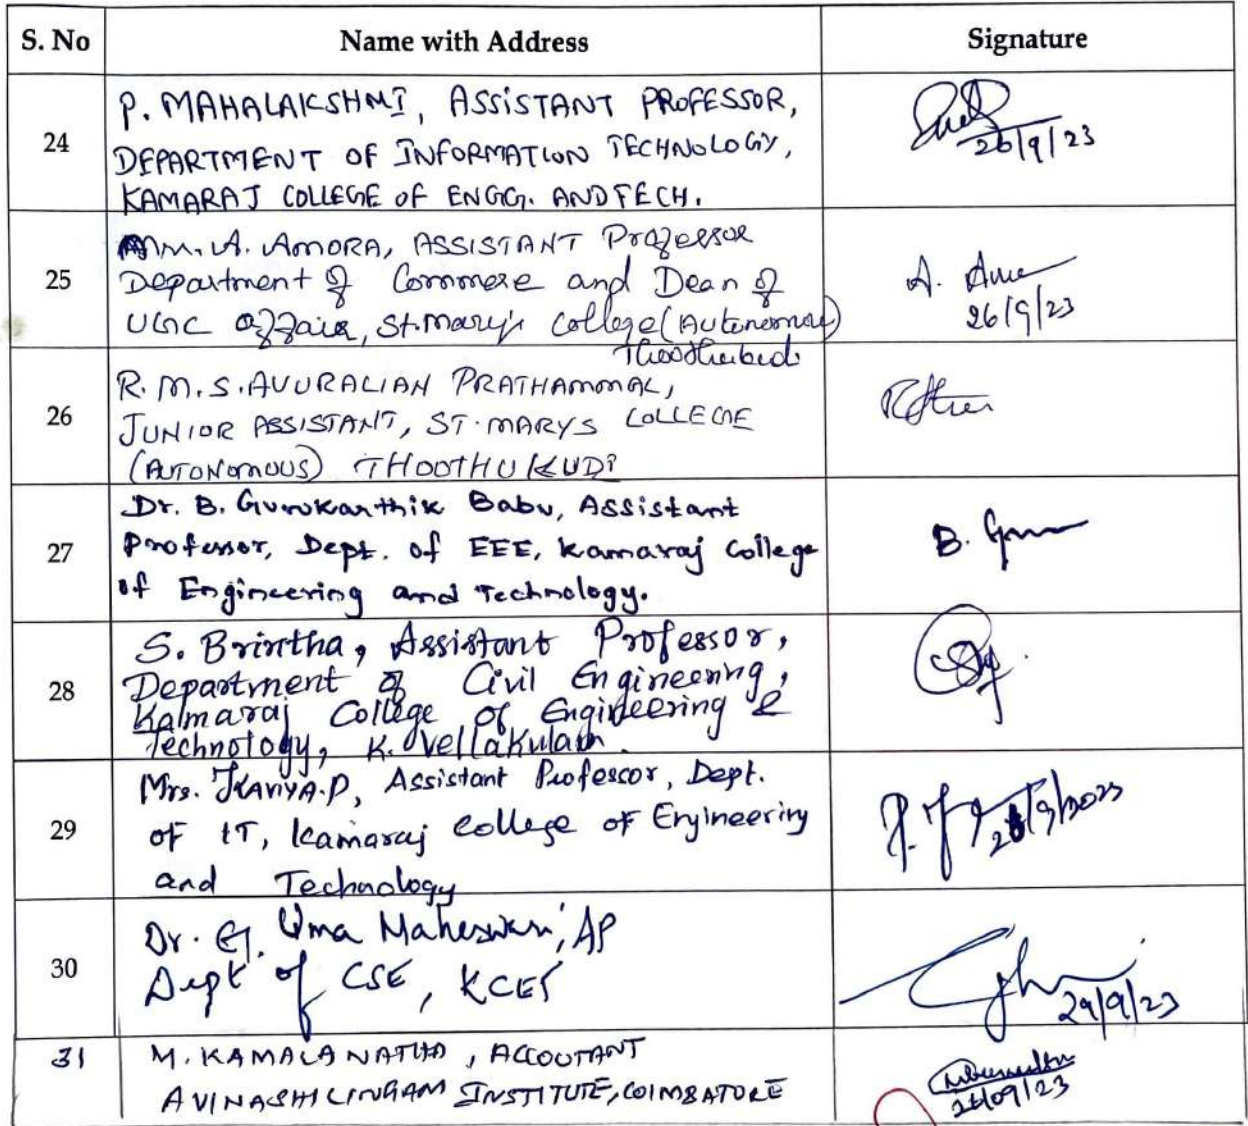 S. No Name with Address Signature
P. MAHALAKSHMI, ASSISTANT PROFESSOR,
24 DEPARTMENT OF INFORMATION TECHNOLOGY, 26/9/23
KAMARAJ COLLEGE OF ENGG. AND TECH.
M. A. AMORA, ASSISTANT Professor
25 Department of Commerse and Dean of A.
UGC Affair, St. Mary's College (Autonomous) 26/9/23
Thoothukudi
R. M. S. AVURALIAN PRATHAMMAL,
26 JUNIOR ASSISTANT, ST. MARYS COLLEGE
(AUTONOMOUS) THOOTHUKUDI
Dr. B. Gurukarthik Babu, Assistant
27 Professor, Dept. of EEE, Kamaraj College B.
of Engineering and Technology.
S. Brintha, Assistant Professor,
28 Department of Civil Engineering,
Kalmaraj College of Engineering &
Technology, K. Vellakulam.
Mrs. P, Assistant Professor, Dept.
29 of IT, Kamaraj College of Engineering
and Technology
Dr. G. Uma Maheswari, AP
30 Dept of CSE, KCET
29/9/23
31 M. KAMALA NATHA, ACCOUTANT
AVINASHILINGAM INSTITUTE, COIMBATORE